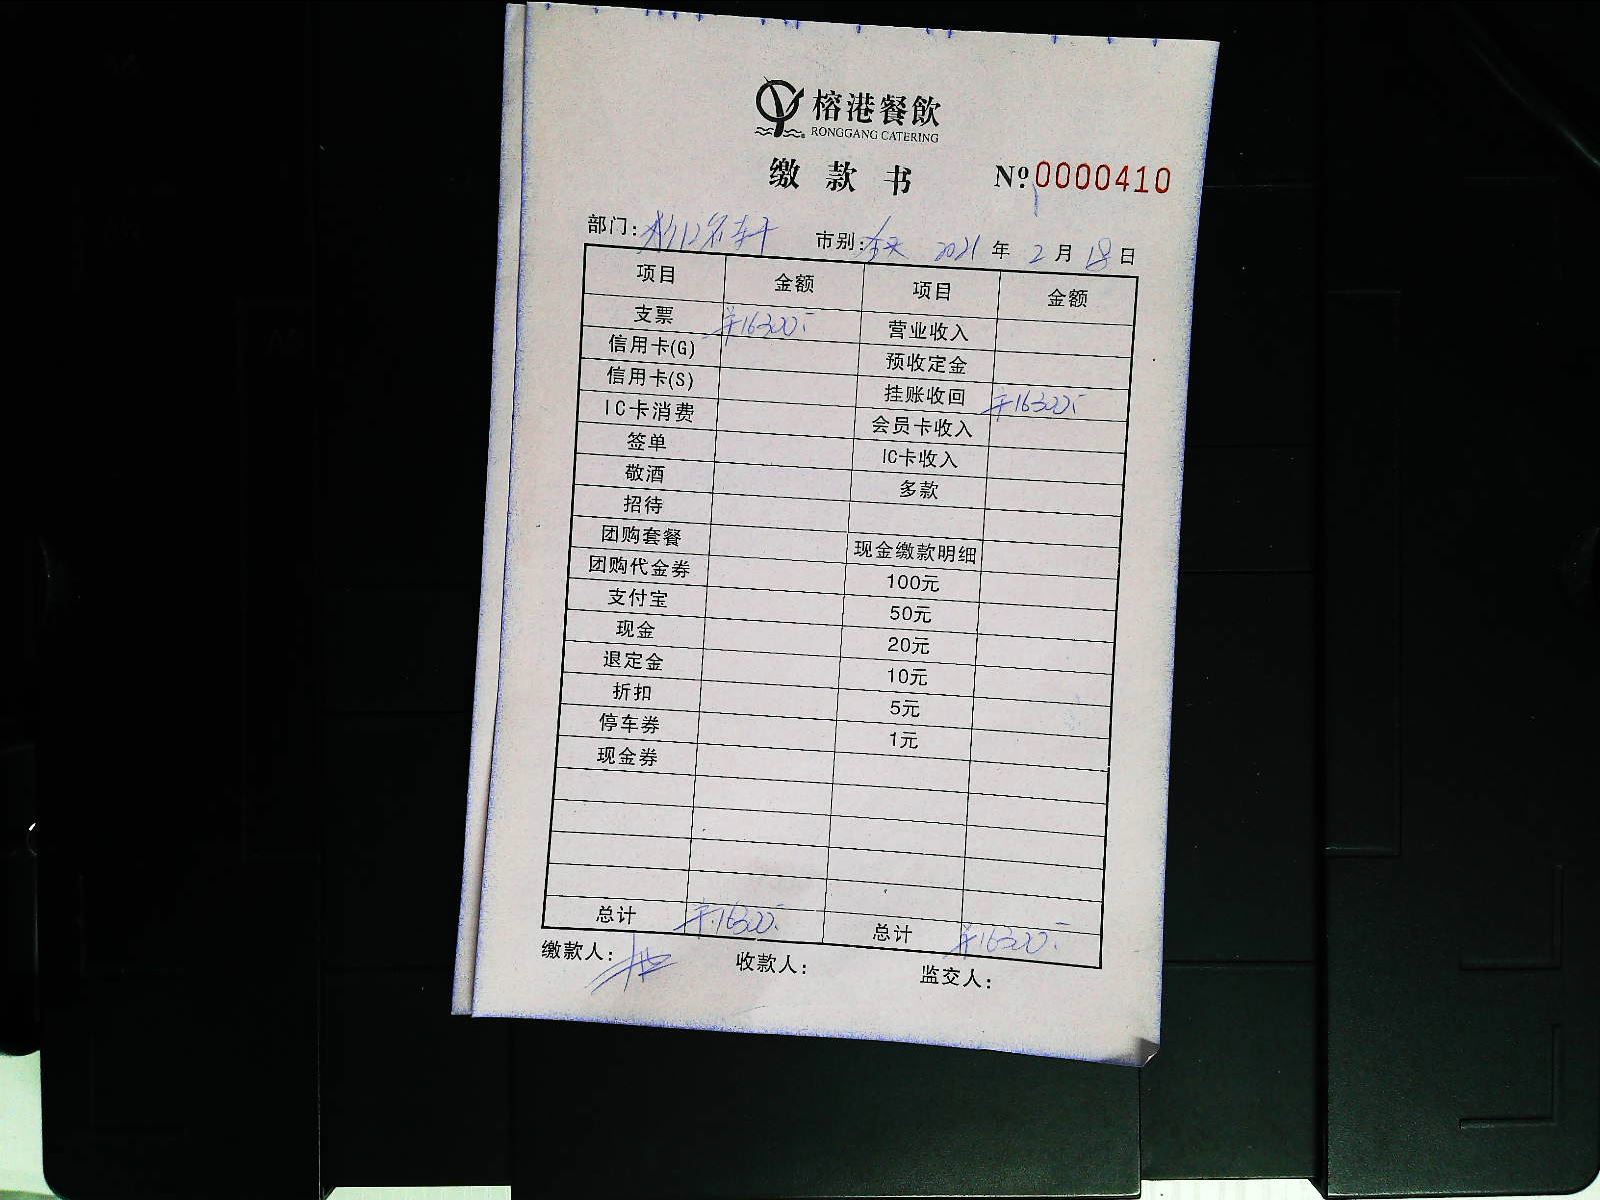 榕港餐飲
RONGGANG CATERING
缴款书 № 0000410
部门: 市别: 全天 2021年2月18日
项目 金额 项目 金额
支票 ¥16300.- 营业收入
信用卡(G) 预收定金
信用卡(S) 挂账收回 ¥16300.-
IC卡消费 会员卡收入
签单 IC卡收入
敬酒 多款
招待
团购套餐 现金缴款明细
团购代金券 100元
支付宝 50元
现金 20元
退定金 10元
折扣 5元
停车券 1元
现金券
总计 ¥16300.- 总计 ¥16300.-
缴款人: 收款人: 监交人: